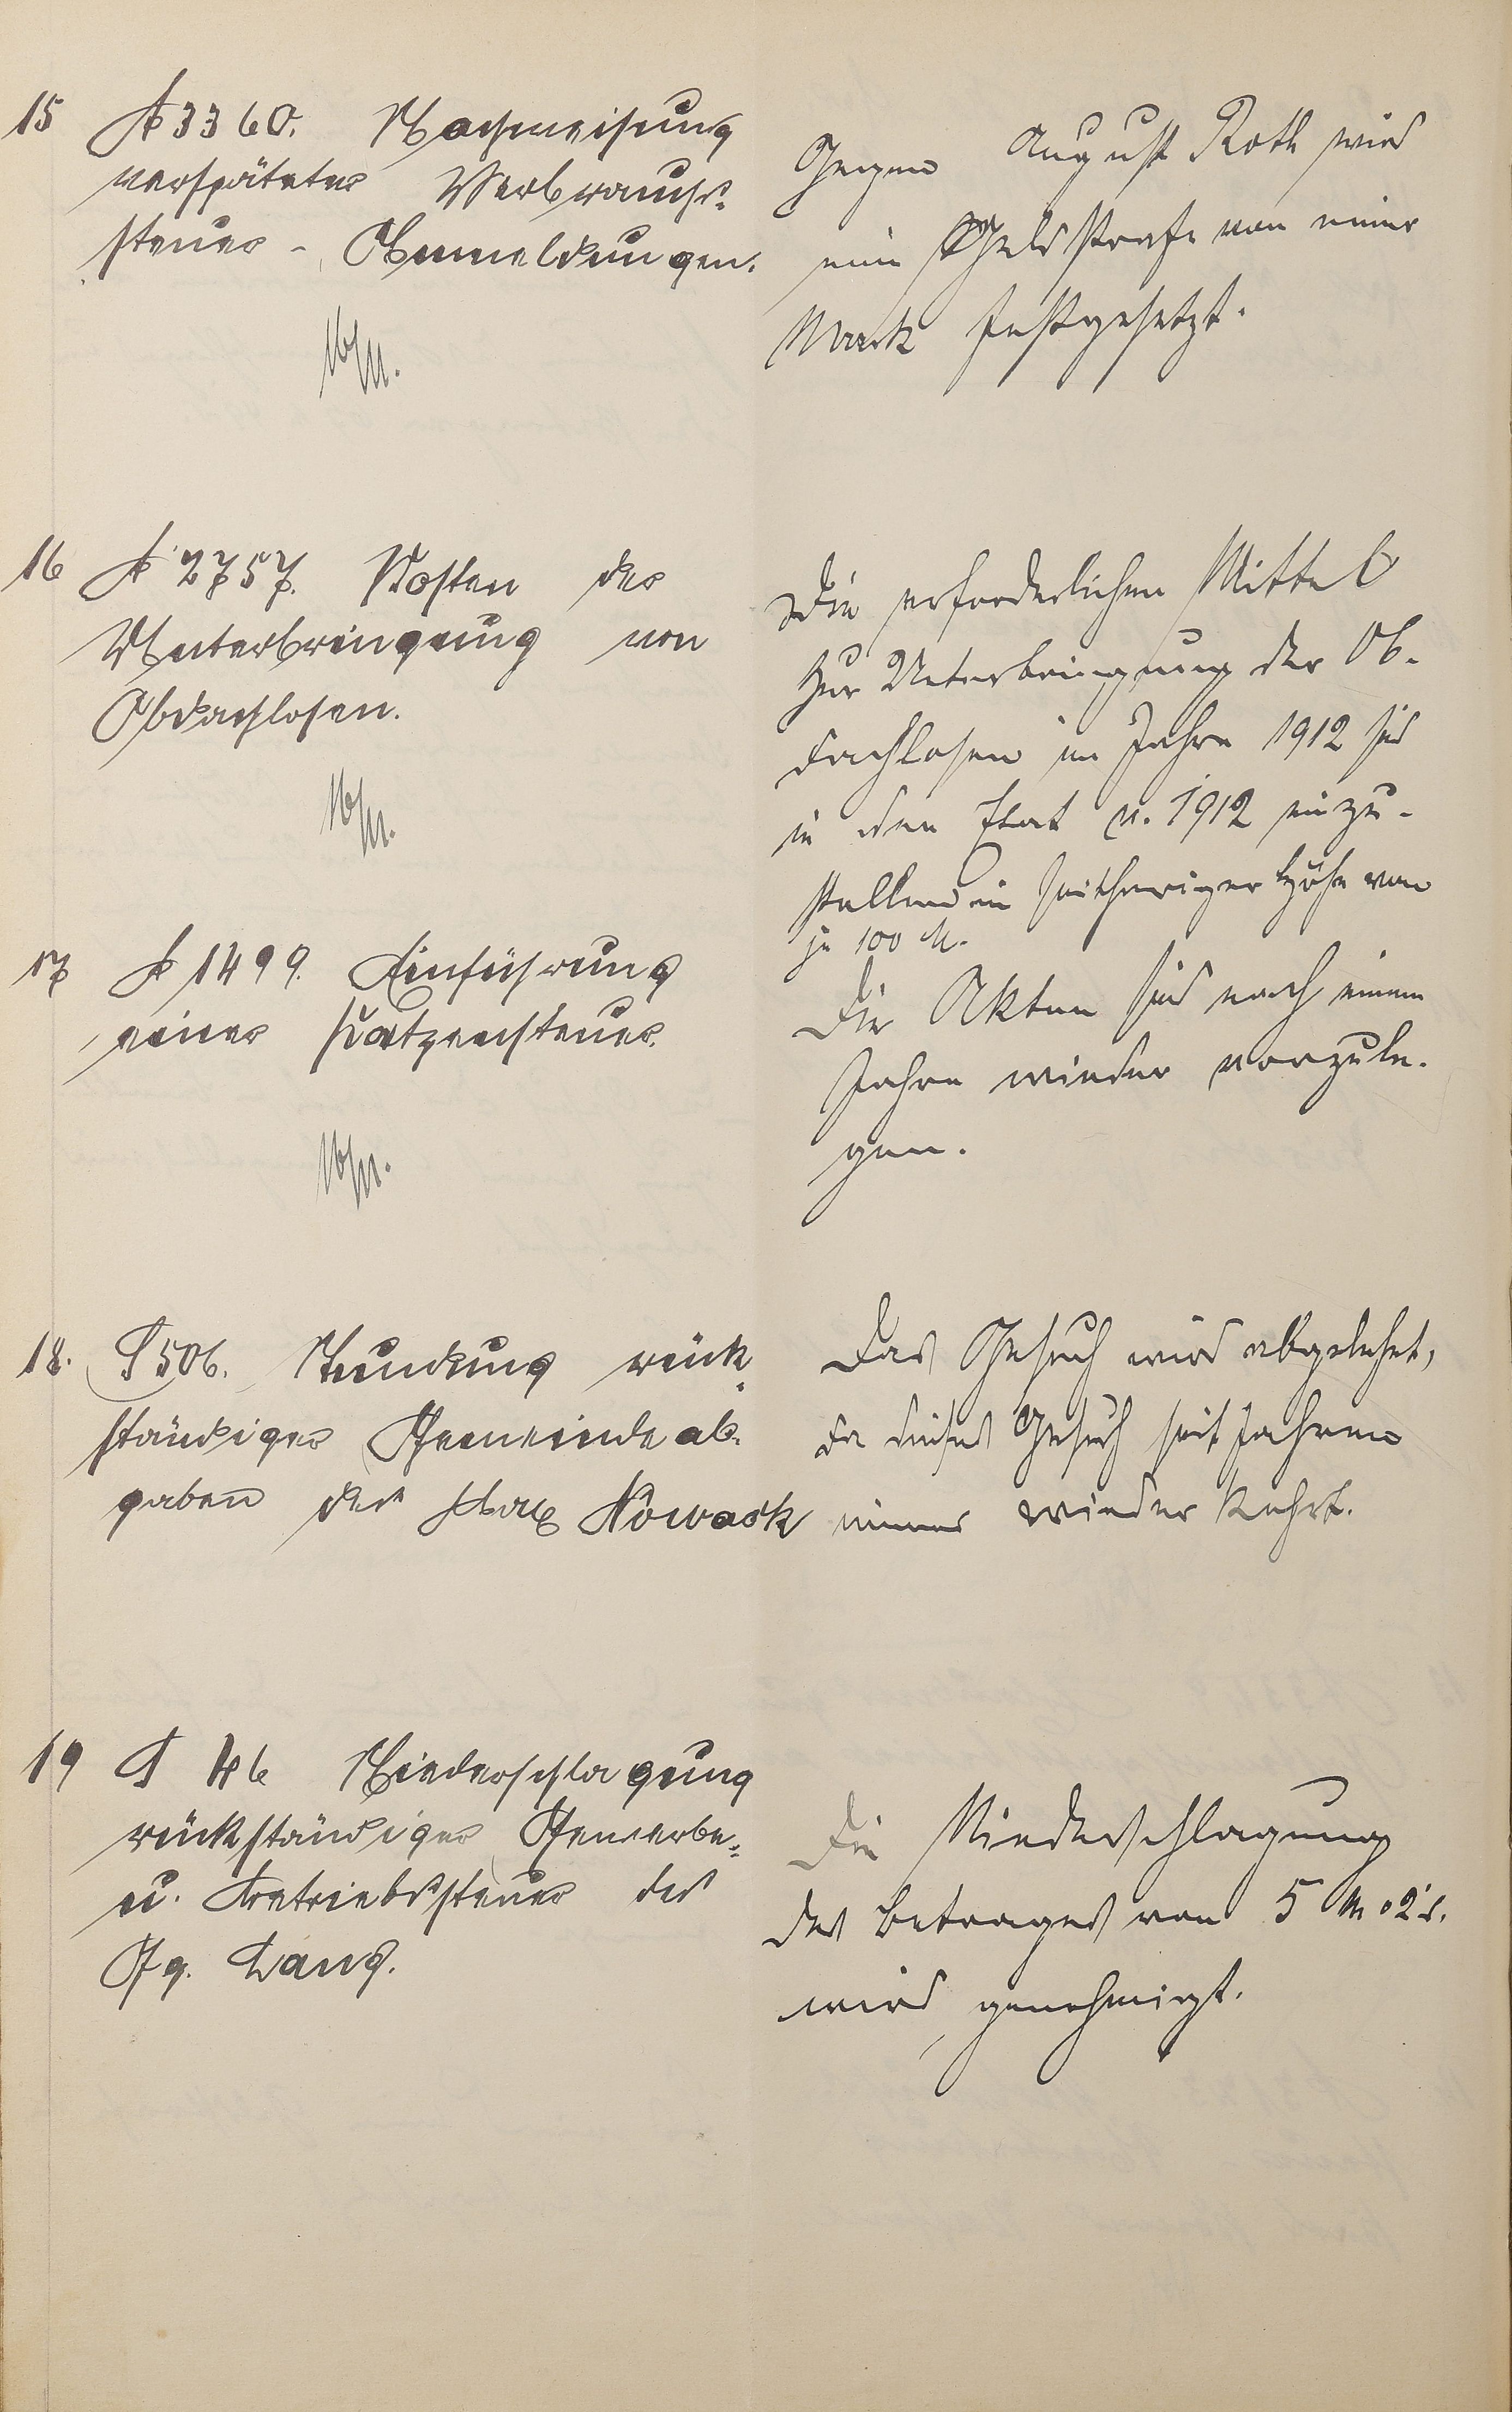 15 A 3360. Nachweisung
verspäteter Verbrauchs-
steuer-Anmeldungen.
Gegen August Roth wird
eine Geldstrafe von einer
Mark festgesetzt.
16 A 2757. Kosten der
Unterbringung von
Obdachlosen.
Die erforderlichen Mittel
zur Unterbringung der Ob-
dachlosen im Jahre 1912 sind
in den Etat v. 1912 einzu-
stellen in seitheriger Höhe von
je 100 M.
17 A 1499. Einführung
einer Katzensteuer.
Die Akten sind nach einem
Jahre wieder vorzule-
gen.
18. S 506. Stundung rück-
ständiger Gemeindeab-
gaben des Nowack
Das Gesuch wird abgelehnt,
da dieses Gesuch seit Jahren
immer wieder kehrt.
19 46 Niederschlagung
rückständiger Gewerbe-
u. Betriebssteuer des
Gg. Lang.
Die Niederschlagung
des Betrages von 5 M 02 d.
wird genehmigt.